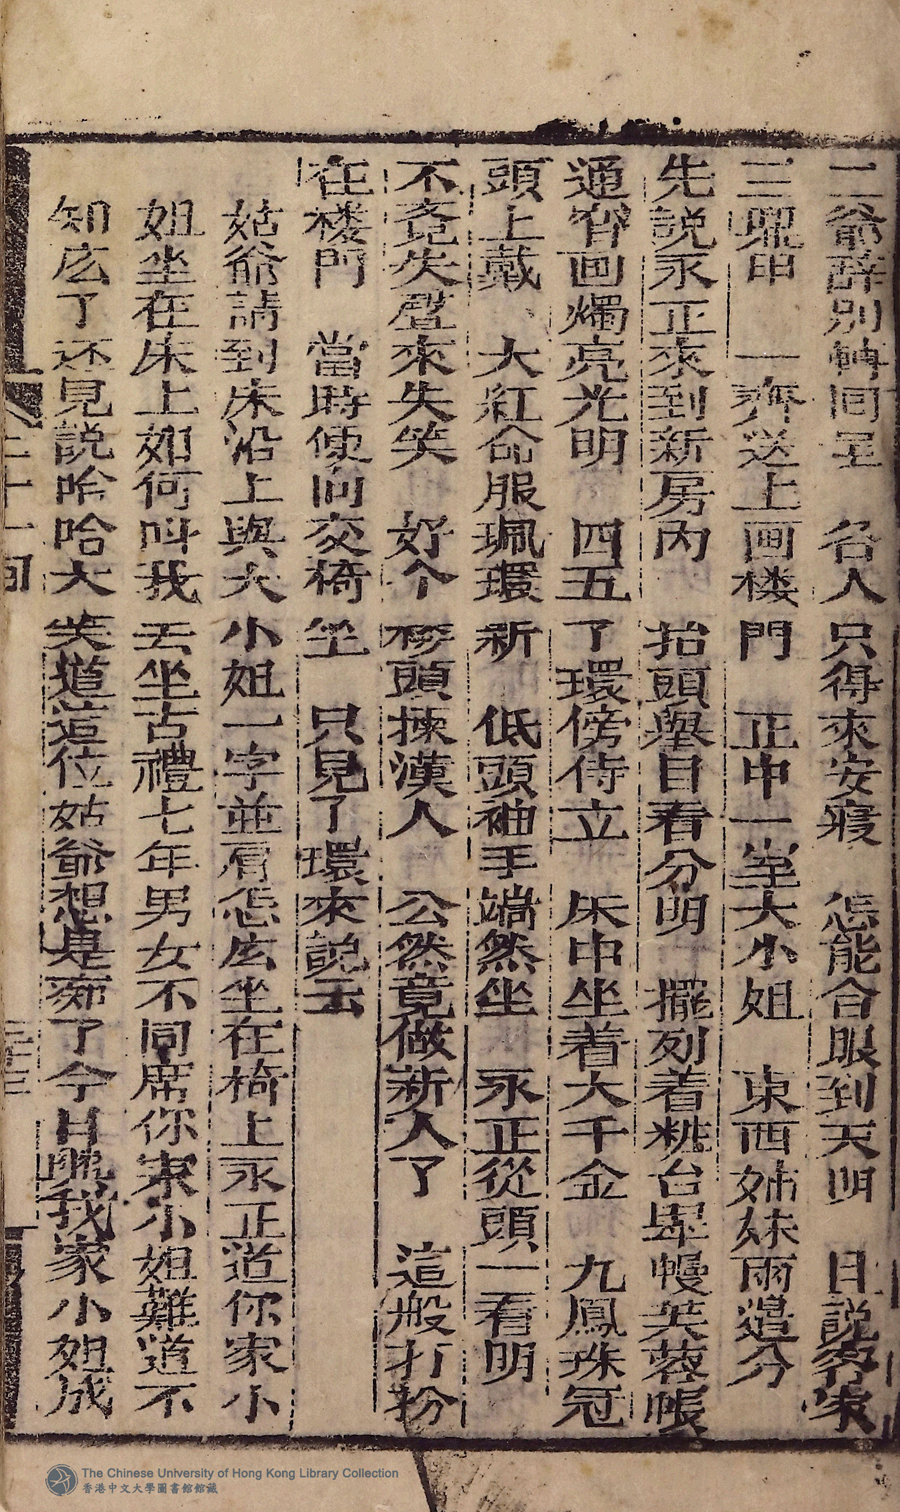 二爺辞别轉囘呈 各人只得來安寢 怎能合眼到天明 且説穷家
三鼎甲 一齊送上画楼門 正中一𡶶大小姐 東西姊妹兩邉分
先説永正來到新房内 抬頭舉目看分明 擺列着粧台犀幔芙蓉帳
通宵画燭亮光明 四五了環傍侍立 床中坐着大千金 九鳳珠冠
頭上戴 大紅命服珮環新 低頭袖手端然坐 永正從頭一看明
不覔失聲來失笑 好个梳頭揀漢人 公然竟做新人了 這般打扮
在楼門 當時便向交椅坐 只見了環來説云
姑爺請到床沿上與大小姐一字並肩怎庅坐在椅上永正道你家小
姐坐在床上如何呌我去坐古禮七年男女不同席你家小姐難道不
知庅了还見説哈哈大笑道這位姑爺想是痴了今日晚我家小姐成
二十一囘
三三
The Chinese University of Hong Kong Library Collection
香港中文大學圖書館館藏